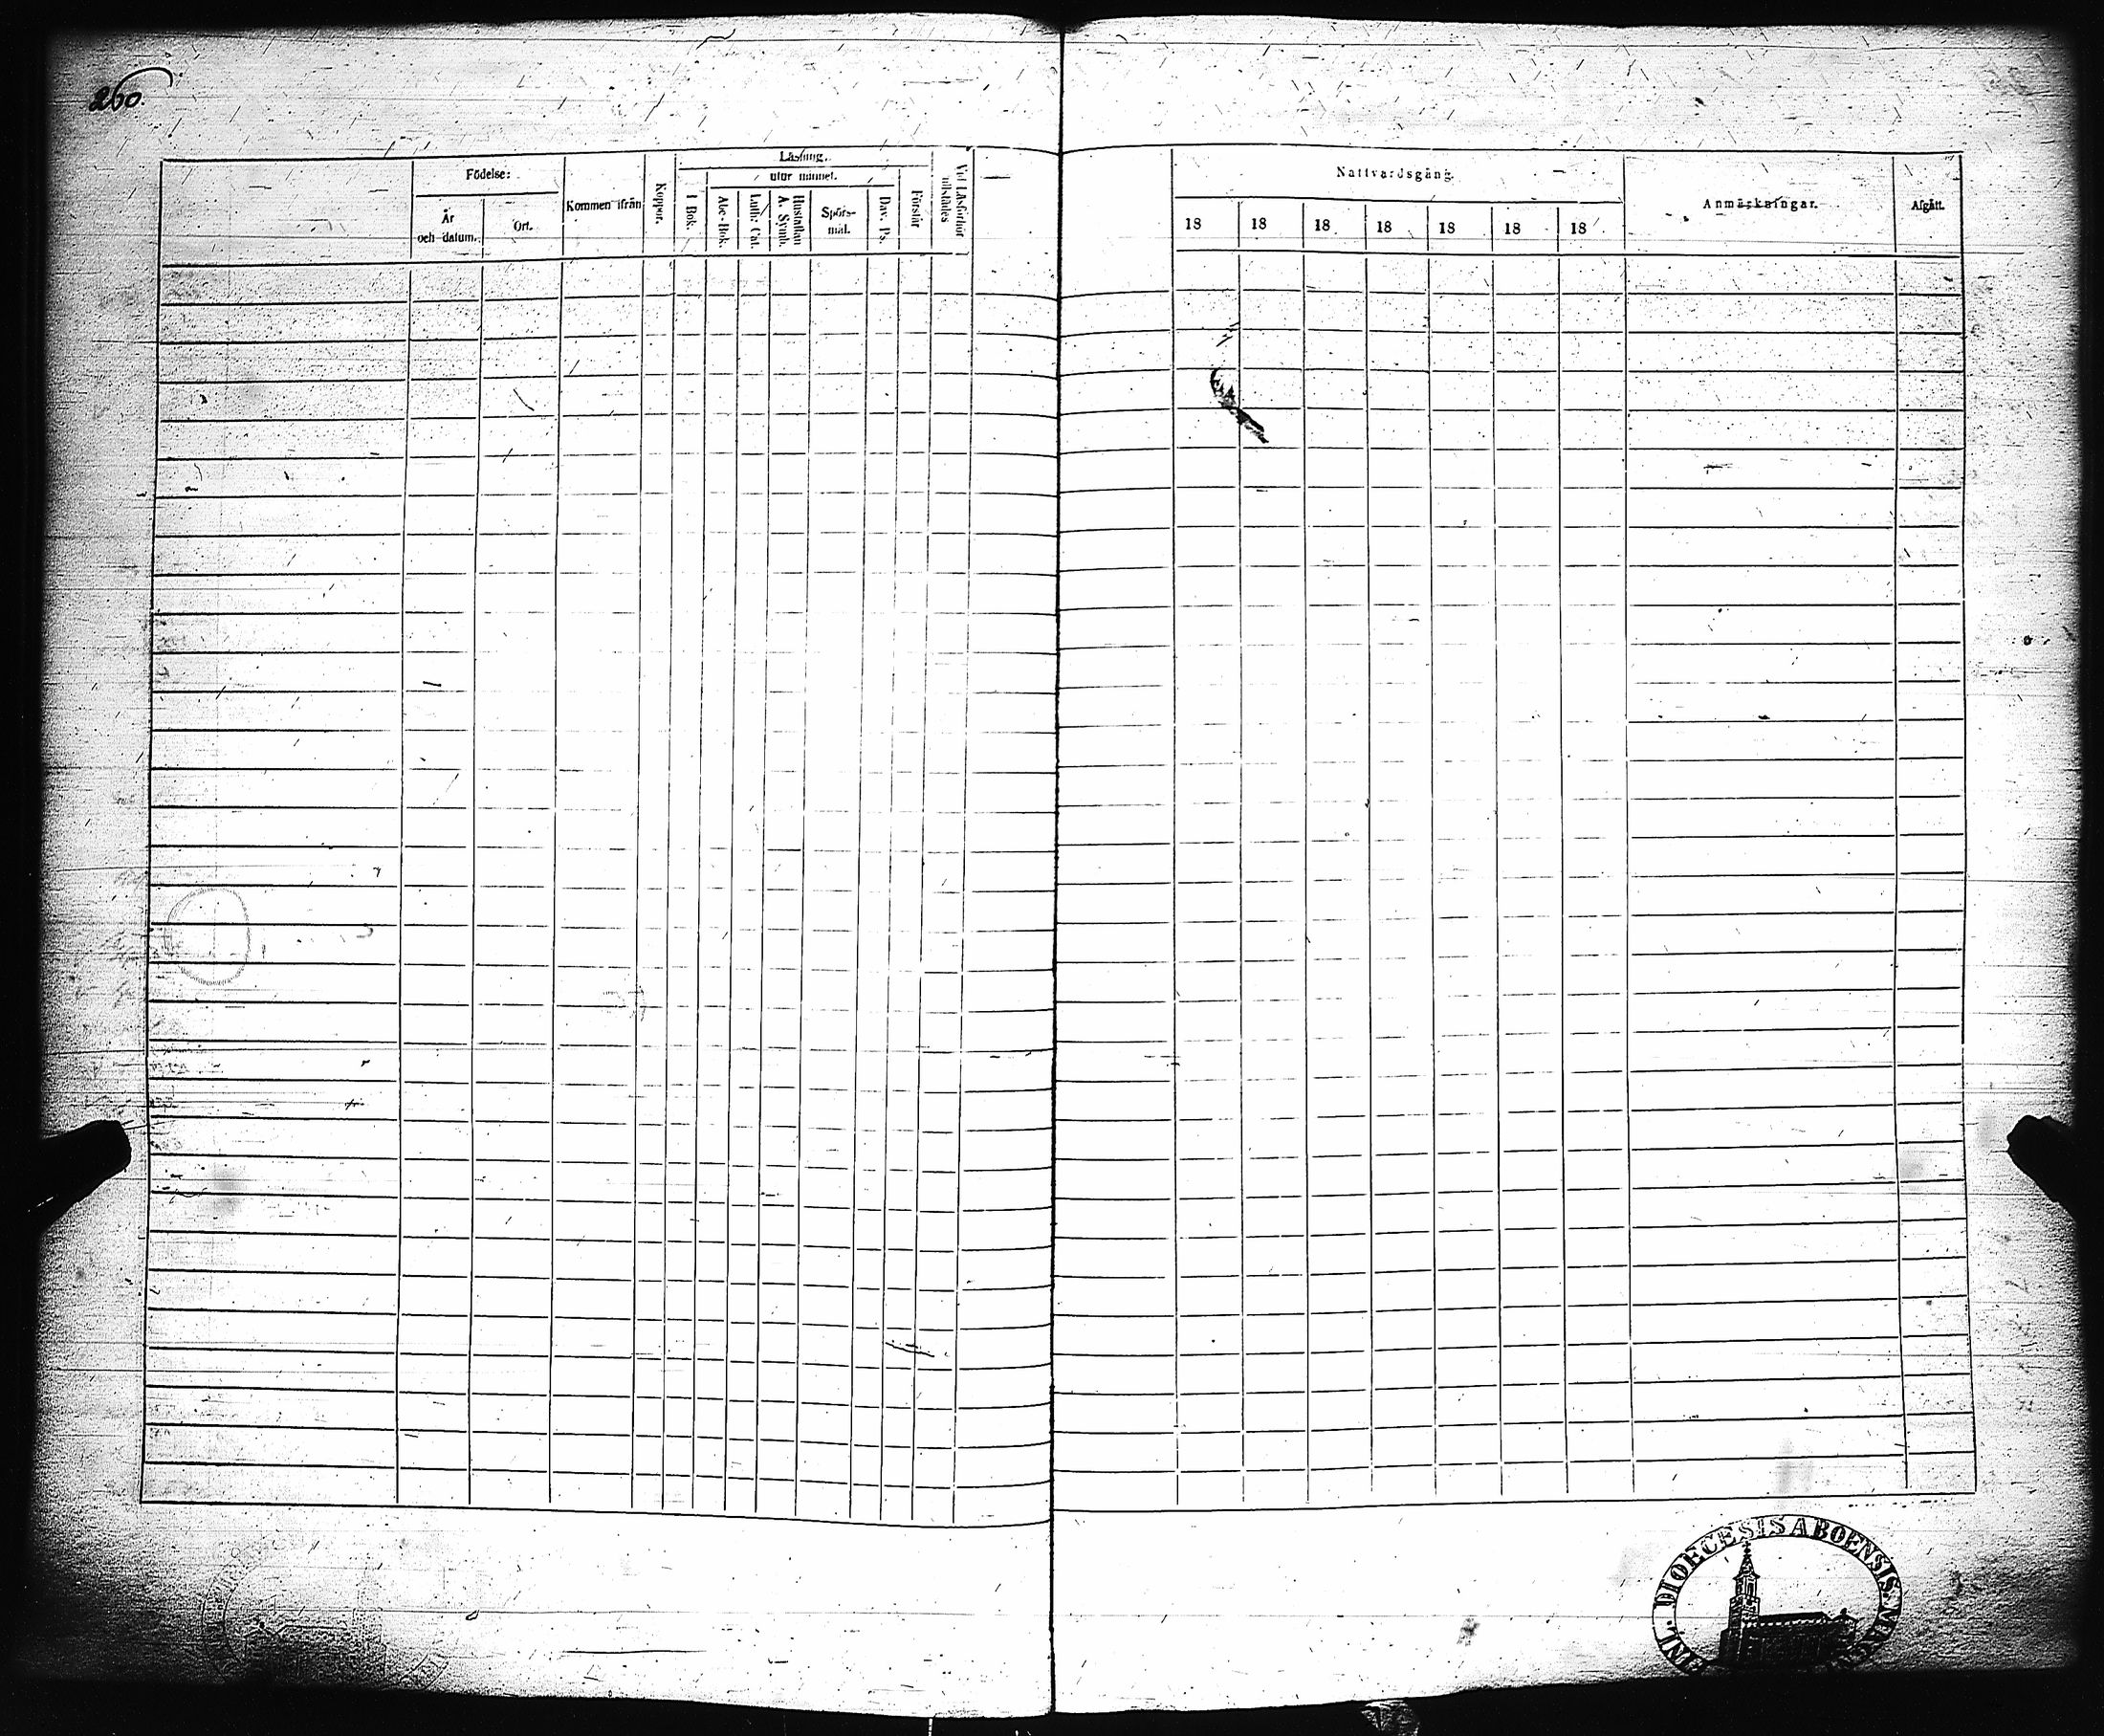 260.
Födelse:
År och datum.
Ort.
Kommen ifrån
Koppor.
Läsning.
utur minnet.
I Bok.
Abc-Bok.
Luth: Cat.
Hustaflan A. Symb.
Spörs-
mål.
Dav. Ps.
Förstår
Vid Läsförhör
Nattvardsgång.
18 18 18 18 18 18 18
Anmärkningar.
Afgått.
DIOECESIS ABOENSIS.